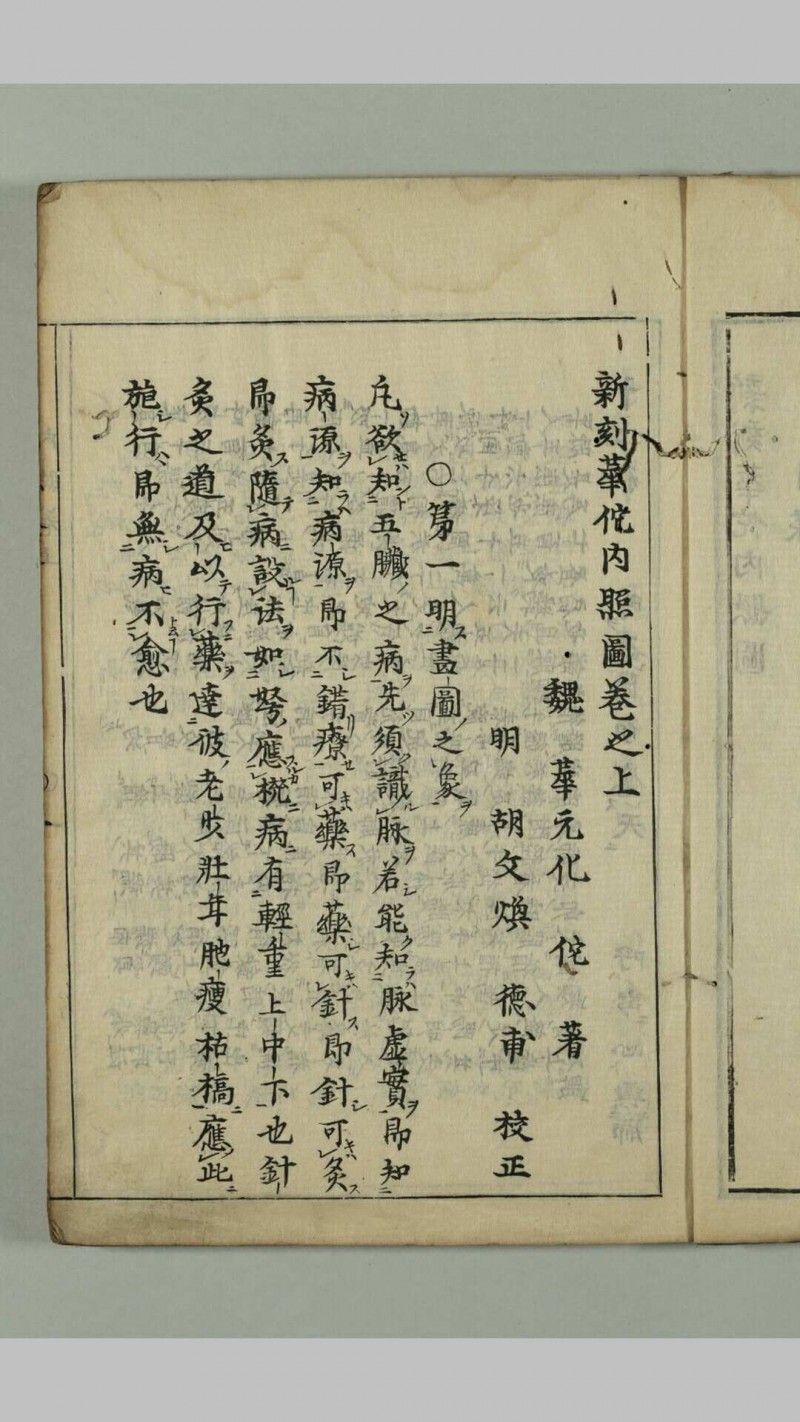 新刻華佗內照圖卷之上
魏 華元化 佗 著
明 胡文煥 德甫 校正
○第一明畫圖之象
凡欲知五臟之病先須識脉若能知脉虛實即知
病源知病源即不錯療可藥即藥可針即針可灸
即灸隨病設法如弩應機病有輕重上中下也針
灸之道及以行藥達彼老少壯年肥瘦枯槁應此
施行即無病不愈也